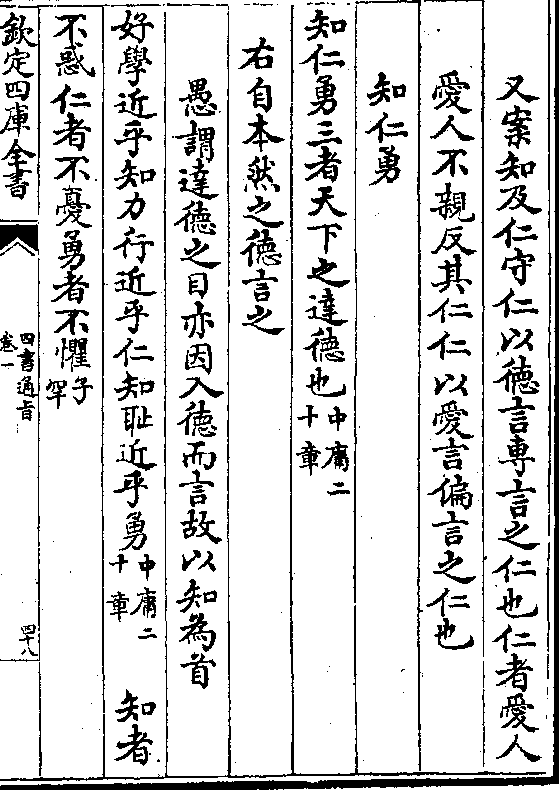 又案知及仁守仁以德言專言之仁也仁者愛人
愛人不親反其仁仁以愛言偏言之仁也
知仁勇
知仁勇三者天下之達德也中庸二十章
右自本然之德言之
愚謂達德之目亦因入德而言故以知為首
好學近乎知力行近乎仁知耻近乎勇中庸二十章 知者
不惑仁者不憂勇者不懼子罕
欽定四庫全書
四書通旨
卷一
四十八